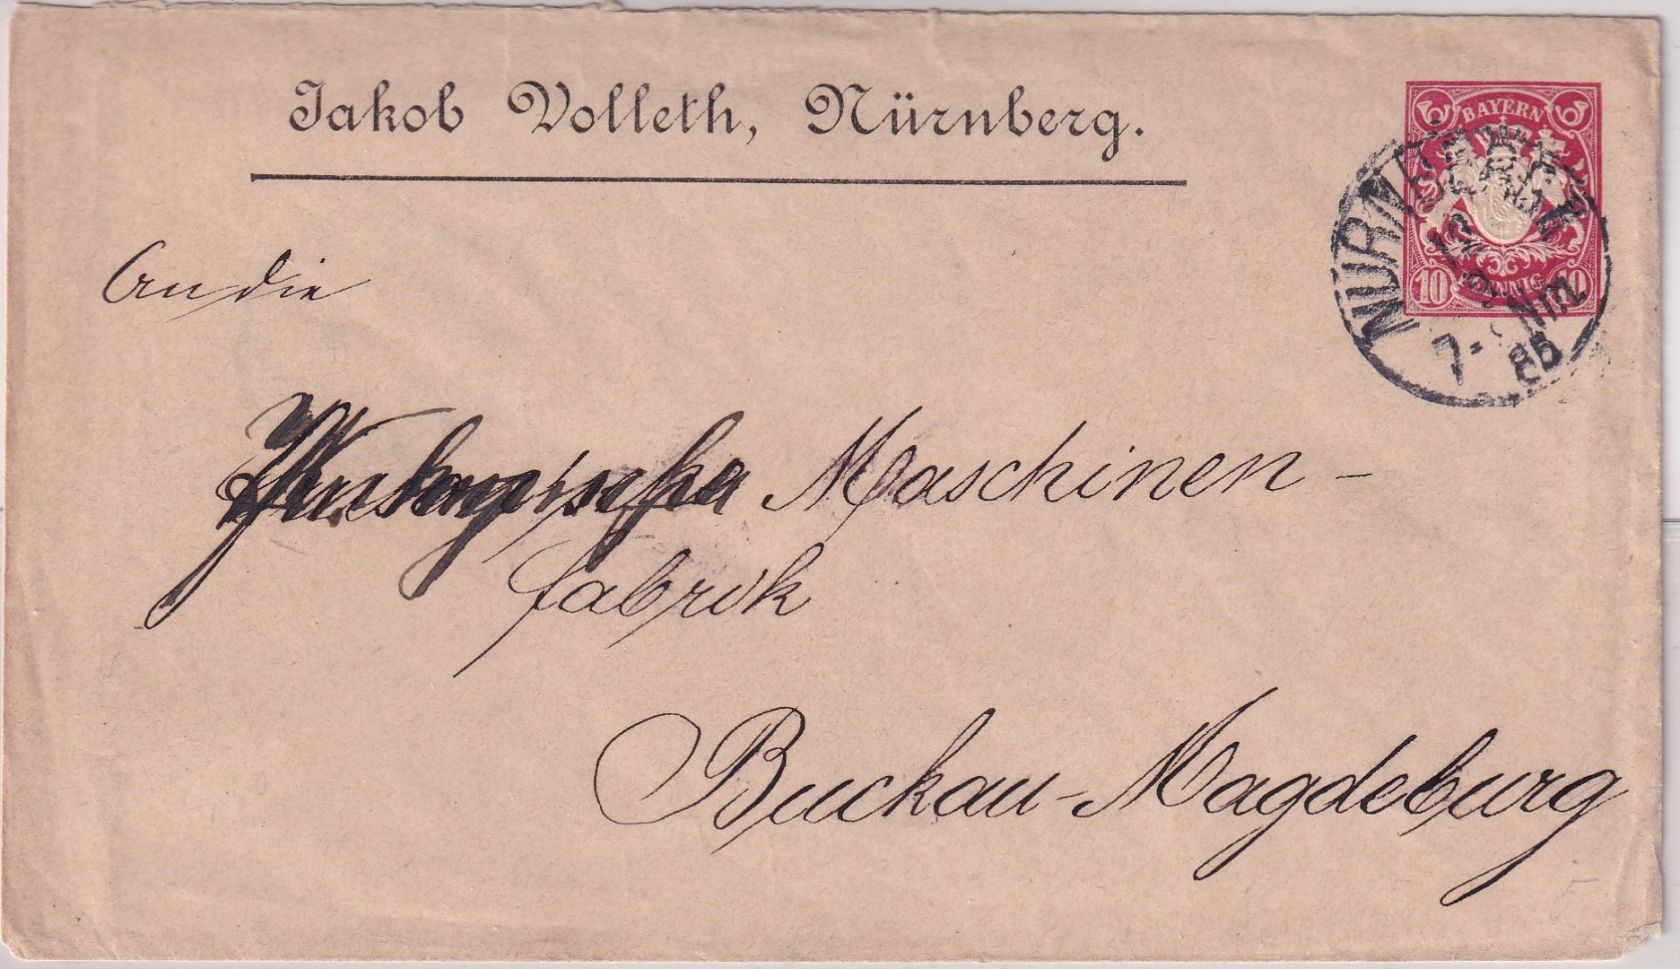 Jakob Volleth, Nürnberg.
BAYERN
10 10
NÜRNBERG
7-8 Nm.
86
An die
Maschinen-
fabrik
Buckau-Magdeburg